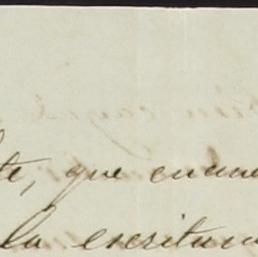 te, que cuan
la escritura